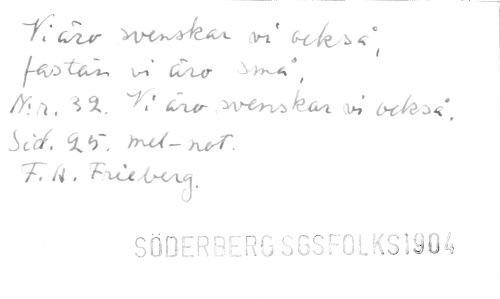 Vi äro svenskar vi också,
fastän vi äro små,
N:r. 32. Vi äro svenskar vi också.
Sid. 25. mel-not.
F. A. Frieberg.
SÖDERBERG SGSFOLKS1904